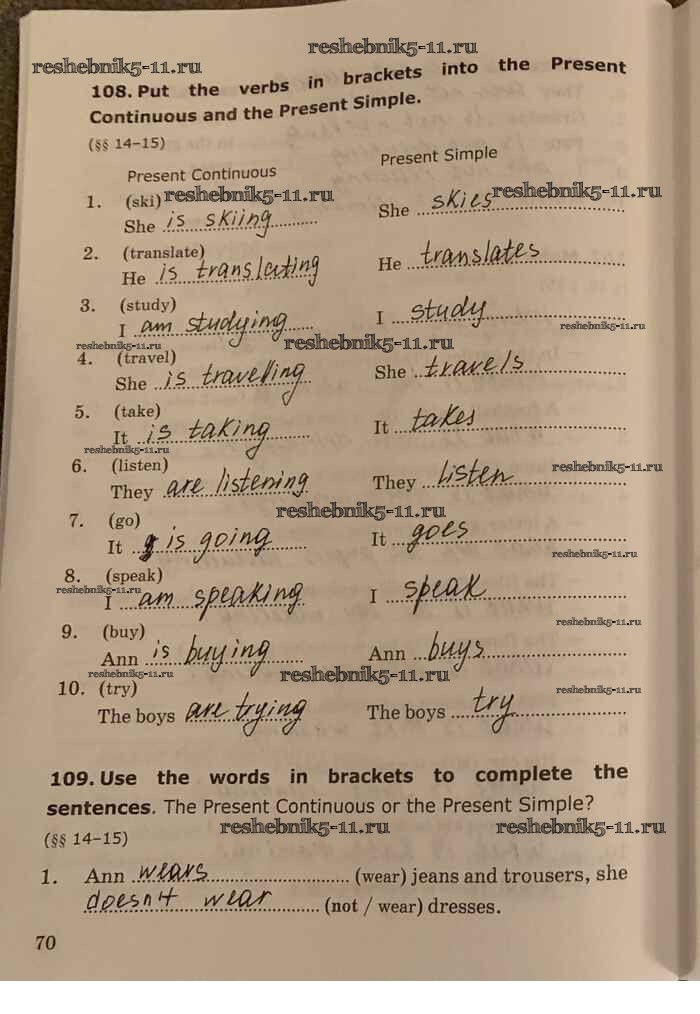 reshebnik5-11.ru
reshebnik5-11.ru
108. Put the verbs in brackets into the Present
Continuous and the Present Simple.
(§§ 14–15)
Present Continuous Present Simple
1. (ski) reshebnik5-11.ru reshebnik5-11.ru
She is skiing She skies
2. (translate)
He is translating He translates
3. (study)
I am studying I study
reshebnik5-11.ru
reshebnik5-11.ru reshebnik5-11.ru
4. (travel)
She is travelling She travels
5. (take)
It is taking It takes
reshebnik5-11.ru
6. (listen) reshebnik5-11.ru
They are listening They listen
reshebnik5-11.ru
7. (go)
It is going It goes
reshebnik5-11.ru
8. (speak)
reshebnik5-11.ru
I am speaking I speak
reshebnik5-11.ru
9. (buy)
Ann is buying Ann buys
reshebnik5-11.ru reshebnik5-11.ru
10. (try) reshebnik5-11.ru
The boys are trying The boys try
109. Use the words in brackets to complete the
sentences. The Present Continuous or the Present Simple?
reshebnik5-11.ru reshebnik5-11.ru
(§§ 14–15)
1. Ann wears (wear) jeans and trousers, she
doesn't wear (not / wear) dresses.
70